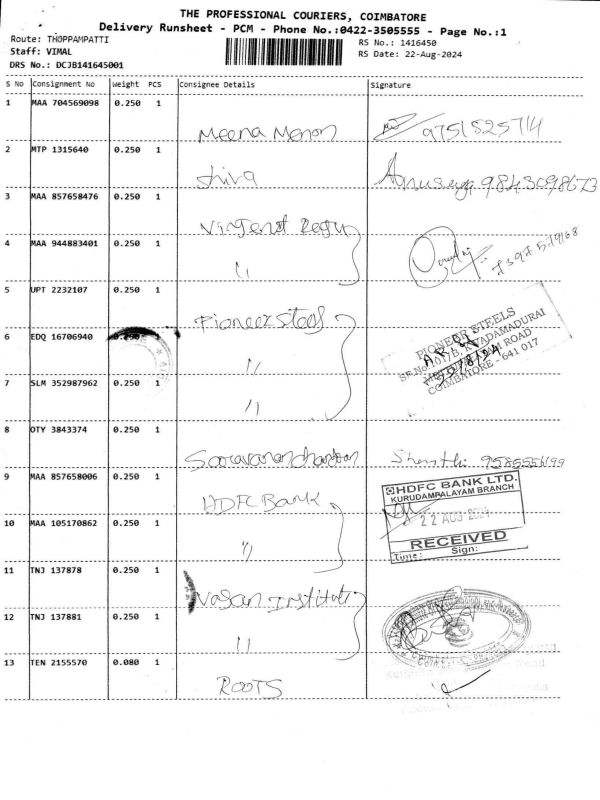 THE PROFESSIONAL COURIERS, COIMBATORE
Delivery Runsheet - PCM - Phone No.:0422-3505555 - Page No.:1
Route: THOPPAMPATTI
Staff: VIMAL
DRS No.: DCJB141645001
RS No.: 1416450
RS Date: 22-Aug-2024
S No Consignment No Weight PCS Consignee Details Signature
1 MAA 704569098 0.250 1 Meena Menon 9751525714
2 MTP 1315640 0.250 1 Shiva Anusuya 9843098673
3 MAA 857658476 0.250 1 Vincent Regu
4 MAA 944883401 0.250 1 "
5 UPT 2232107 0.250 1 Pioneer Steels
PIONEER STEELS
COIMBATORE - 641 017
6 EDQ 16706940 0.250 1 "
7 SLM 352987962 0.250 1 "
8 OTY 3843374 0.250 1 Shanthi
9 MAA 857658006 0.250 1 HDFC Bank
HDFC BANK LTD.
KURUDAMPALAYAM BRANCH
22 AUG 2024
RECEIVED
Time: Sign:
10 MAA 105170862 0.250 1 "
11 TNJ 137878 0.250 1 Vasan Institute
12 TNJ 137881 0.250 1 "
13 TEN 2155570 0.080 1 ROOTS